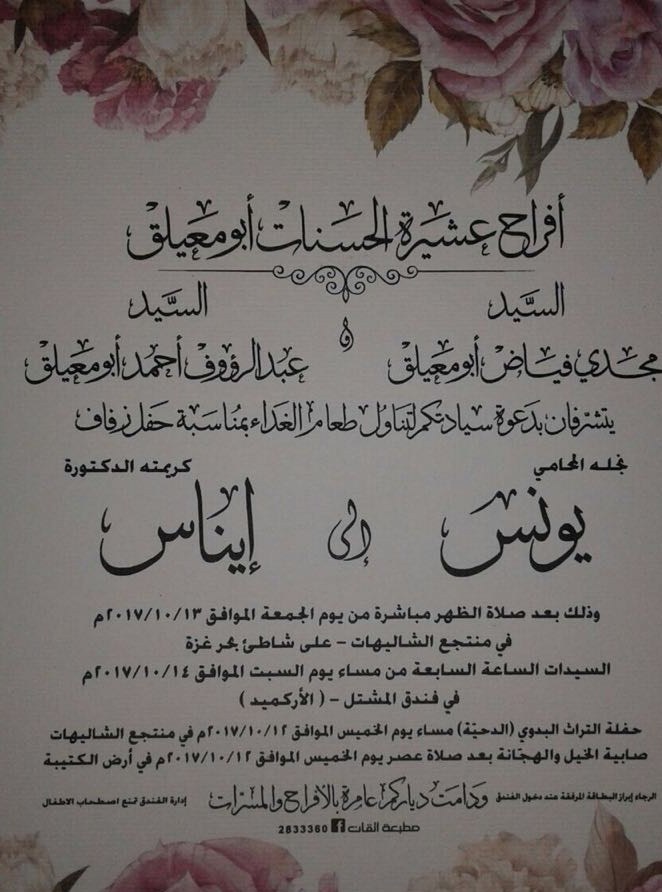 أفراح عشيرة الحسنات أبو معيلق
السيّد
مجدي فياض أبو معيلق
و
السيّد
عبد الرؤوف أحمد أبو معيلق
يتشرفان بدعوة سيادتكم لتناول طعام الغداء بمناسبة حفل زفاف
نجله المحامي
يونس
إلى
كريمته الدكتورة
إيناس
وذلك بعد صلاة الظهر مباشرة من يوم الجمعة الموافق ٢٠١٧/١٠/١٣م
في منتجع الشاليهات - على شاطئ بحر غزة
السيدات الساعة السابعة من مساء يوم السبت الموافق ٢٠١٧/١٠/١٤م
في فندق المشتل - ( الأركميد )
حفلة التراث البدوي (الدحيّة) مساء يوم الخميس الموافق ٢٠١٧/١٠/١٢م في منتجع الشاليهات
صابية الخيل والهجّانة بعد صلاة عصر يوم الخميس الموافق ٢٠١٧/١٠/١٢م في أرض الكتيبة
الرجاء إبراز البطاقة المرفقة عند دخول الفندق
ودامت دياركم عامرة بالأفراح والمسرات
إدارة الفندق تمنع اصطحاب الاطفال
مطبعة القات f 2833360